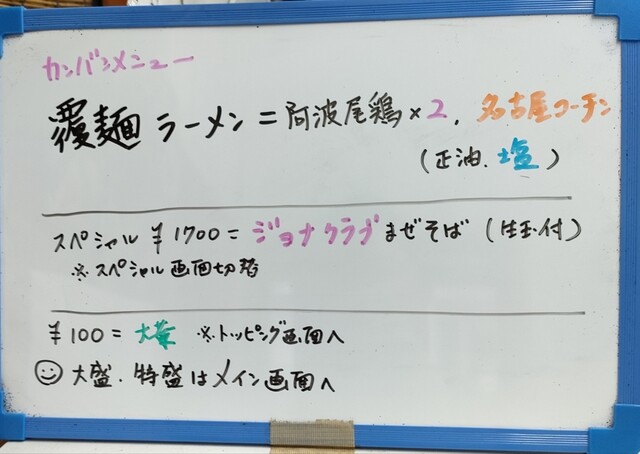 カンバンメニュー
覆麺 ラーメン = 阿波尾鶏×2. 名古屋コーチン
(正油.塩)
スペシャル ¥1700 = ジョナクラブまぜそば (生玉付)
※スペシャル画面切替
¥100 = 大葉 ※トッピング画面へ
大盛.特盛はメイン画面へ